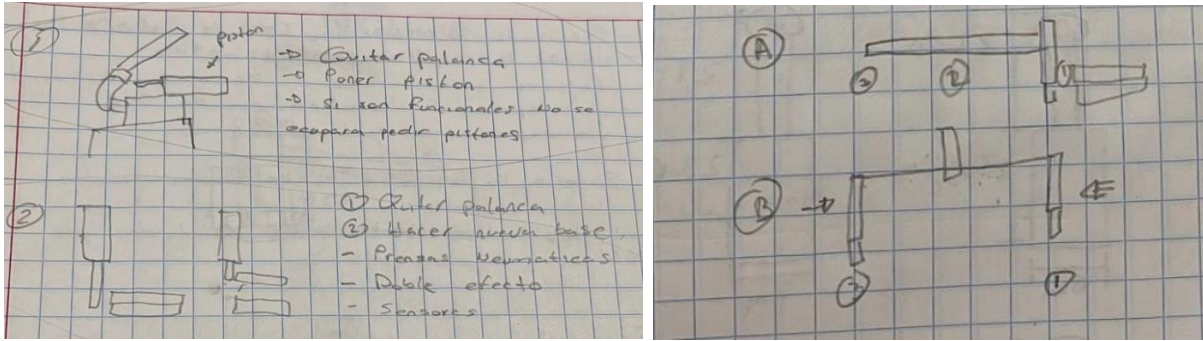 1
piston
→ Quitar palanca
→ Poner piston
→ Si son funcionales no se
ocupara pedir pistones
2
① Quitar palanca
② Hacer nueva base
- Prensas Neumaticas
- Doble efecto
- Sensores
A
② ①
B
①